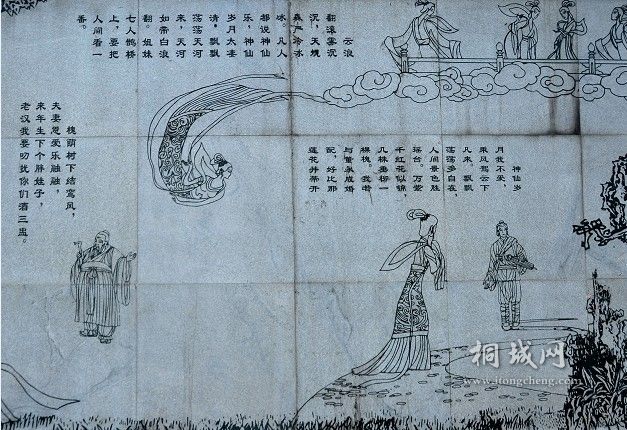 云浪
翻滚雾沉
沉，天境
森严冷冰
冰。凡人
都说神仙
乐，神仙
岁月太凄
清。飘飘
荡荡天河
来，天河
如带白浪
翻。姐妹
七人鹊桥
上，要把
人间看一
番。
神仙岁
月我不爱，
乘风驾云下
凡来。飘飘
荡荡多自在，
人间景色胜
瑶台。万紫
千红花似锦，
几株垂杨一
棵槐。我若
与董永成婚
配，好比那
莲花并蒂开
槐荫树下结鸾凤，
夫妻恩爱乐融融，
来年生下个胖娃子，
老汉我要叨扰你们酒三盅。
桐城网
www.itongcheng.com